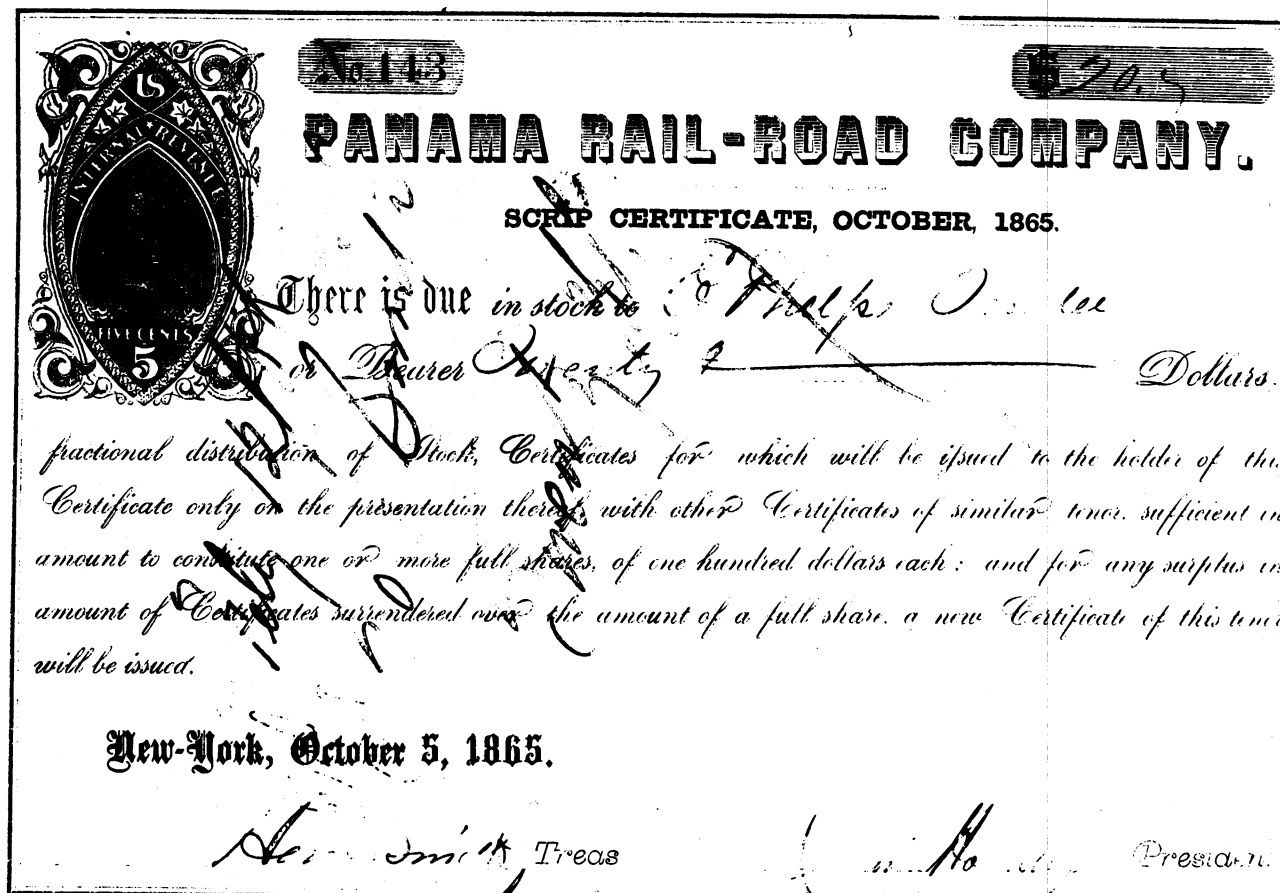 No. 143
$
US
INTERNAL REVENUE
FIVE CENTS
5
PANAMA RAIL-ROAD COMPANY.
SCRIP CERTIFICATE, OCTOBER, 1865.
There is due in stock to Phelps
or Bearer Twenty Dollars.
fractional distribution of Stock, Certificates for which will be issued to the holder of this
Certificate only on the presentation thereof, with other Certificates of similar tenor, sufficient in
amount to constitute one or more full shares, of one hundred dollars each: and for any surplus in
amount of Certificates surrendered over the amount of a full share, a new Certificate of this tenor
will be issued.
New-York, October 5, 1865.
Smith Treas
President.